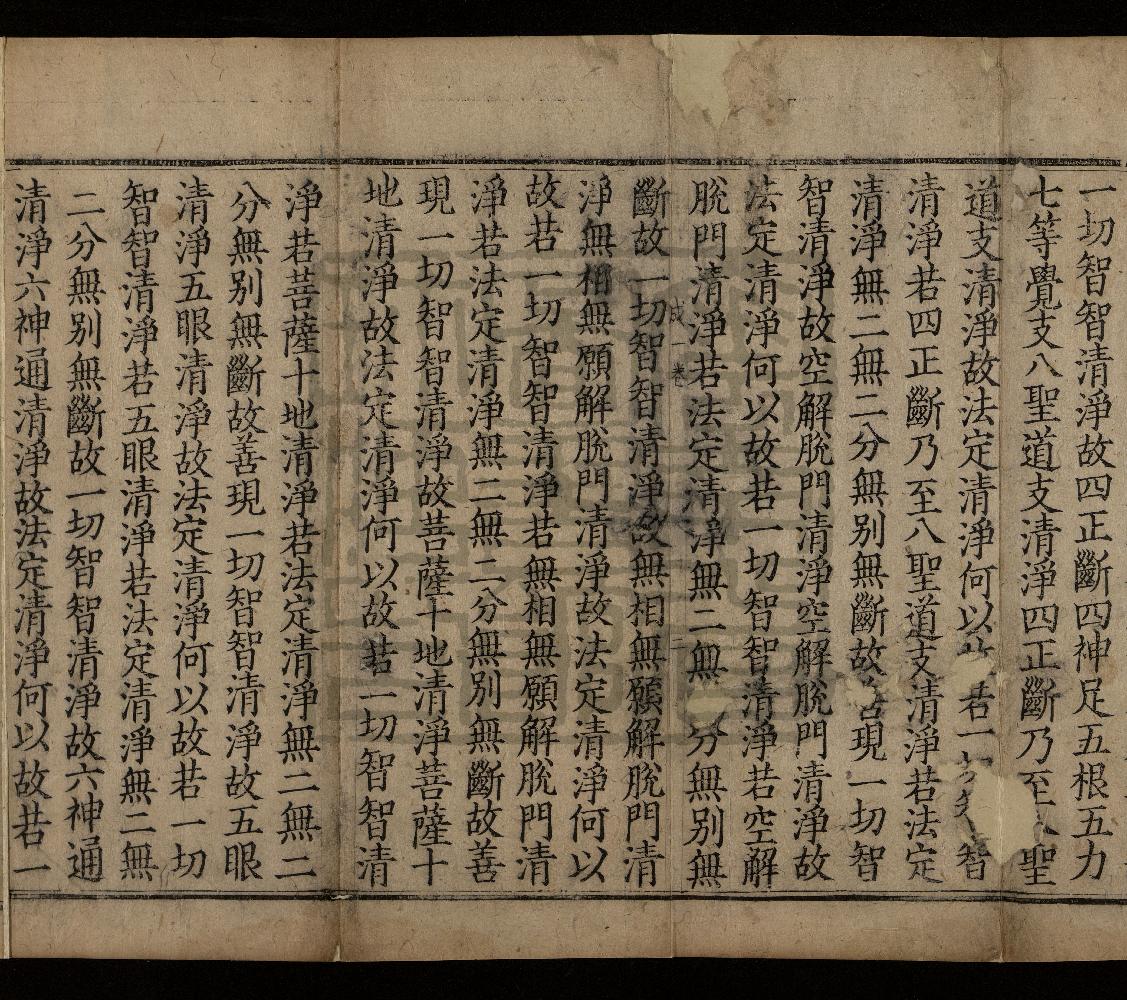 一切智智清淨故四正斷四神足五根五力
七等覺支八聖道支清淨四正斷乃至聖
道支清淨故法定清淨何以若一智
清淨若四正斷乃至八聖道支清淨若法定
清淨無二無二分無別無斷故現一切智
智清淨故空解脫門清淨空解脫門清淨故
法定清淨何以故若一切智智清淨若空解
脫門清淨若法定清淨無二無分無別無
成一卷 二
斷故一切智智清淨故無相無願解脫門清
淨無相無願解脫門清淨故法定清淨何以
故若一切智智清淨若無相無願解脫門清
淨若法定清淨無二無二分無別無斷故善
現一切智智清淨故菩薩十地清淨菩薩十
地清淨故法定清淨何以故若一切智智清
淨若菩薩十地清淨若法定清淨無二無二
分無別無斷故善現一切智智清淨故五眼
清淨五眼清淨故法定清淨何以故若一切
智智清淨若五眼清淨若法定清淨無二無
二分無別無斷故一切智智清淨故六神通
清淨六神通清淨故法定清淨何以故若一